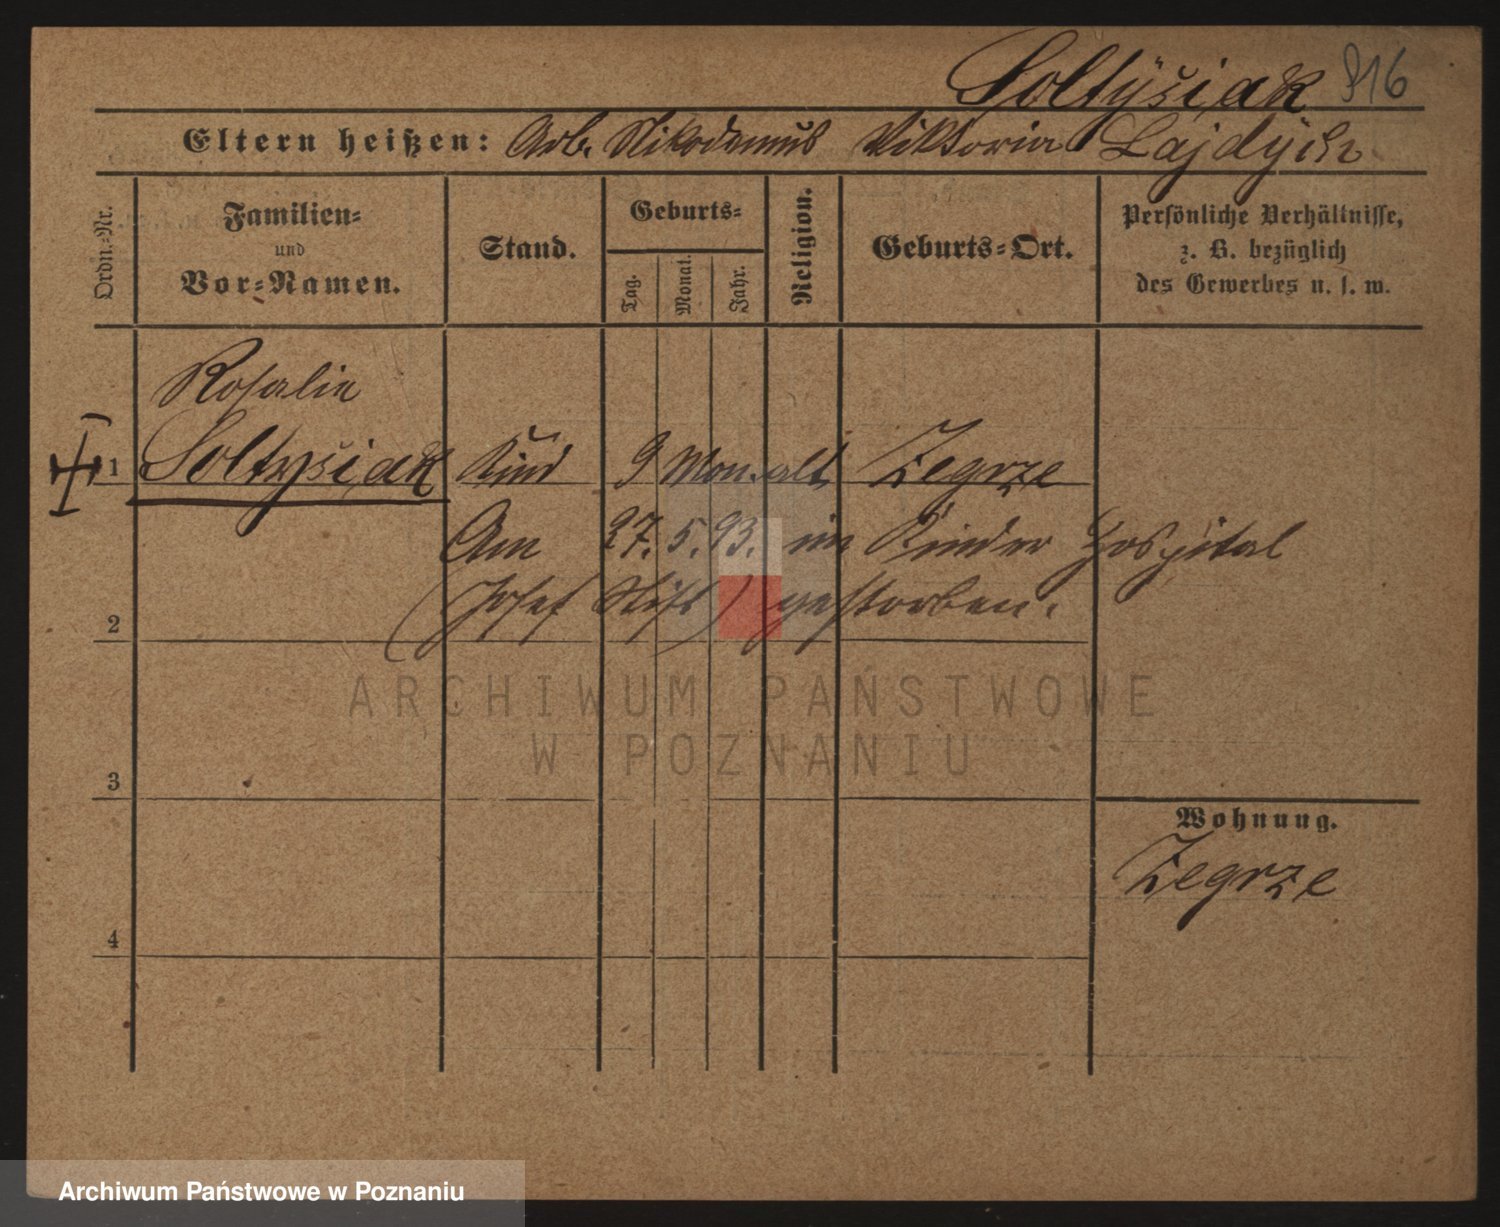 Soltÿśiak 916
Eltern heißen: Arb. Nikodemus Viktoria Lajdÿch
Ordn.-Nr.
Familien-
und
Vor-Namen.
Stand.
Geburts-
Tag.
Monat.
Jahr.
Religion.
Geburts-Ort.
Persönliche Verhältnisse,
z. B. bezüglich
des Gewerbes u. s. w.
Rosalie
1 Soltyśiak Kind 9 Mon. alt Zegrze
Am 27. 5. 93. im Kinder Hospital
2 (Josef Stift) gestorben.
ARCHIWUM PAŃSTWOWE
W POZNANIU
3
Wohnung.
Zegrze
4
Archiwum Państwowe w Poznaniu